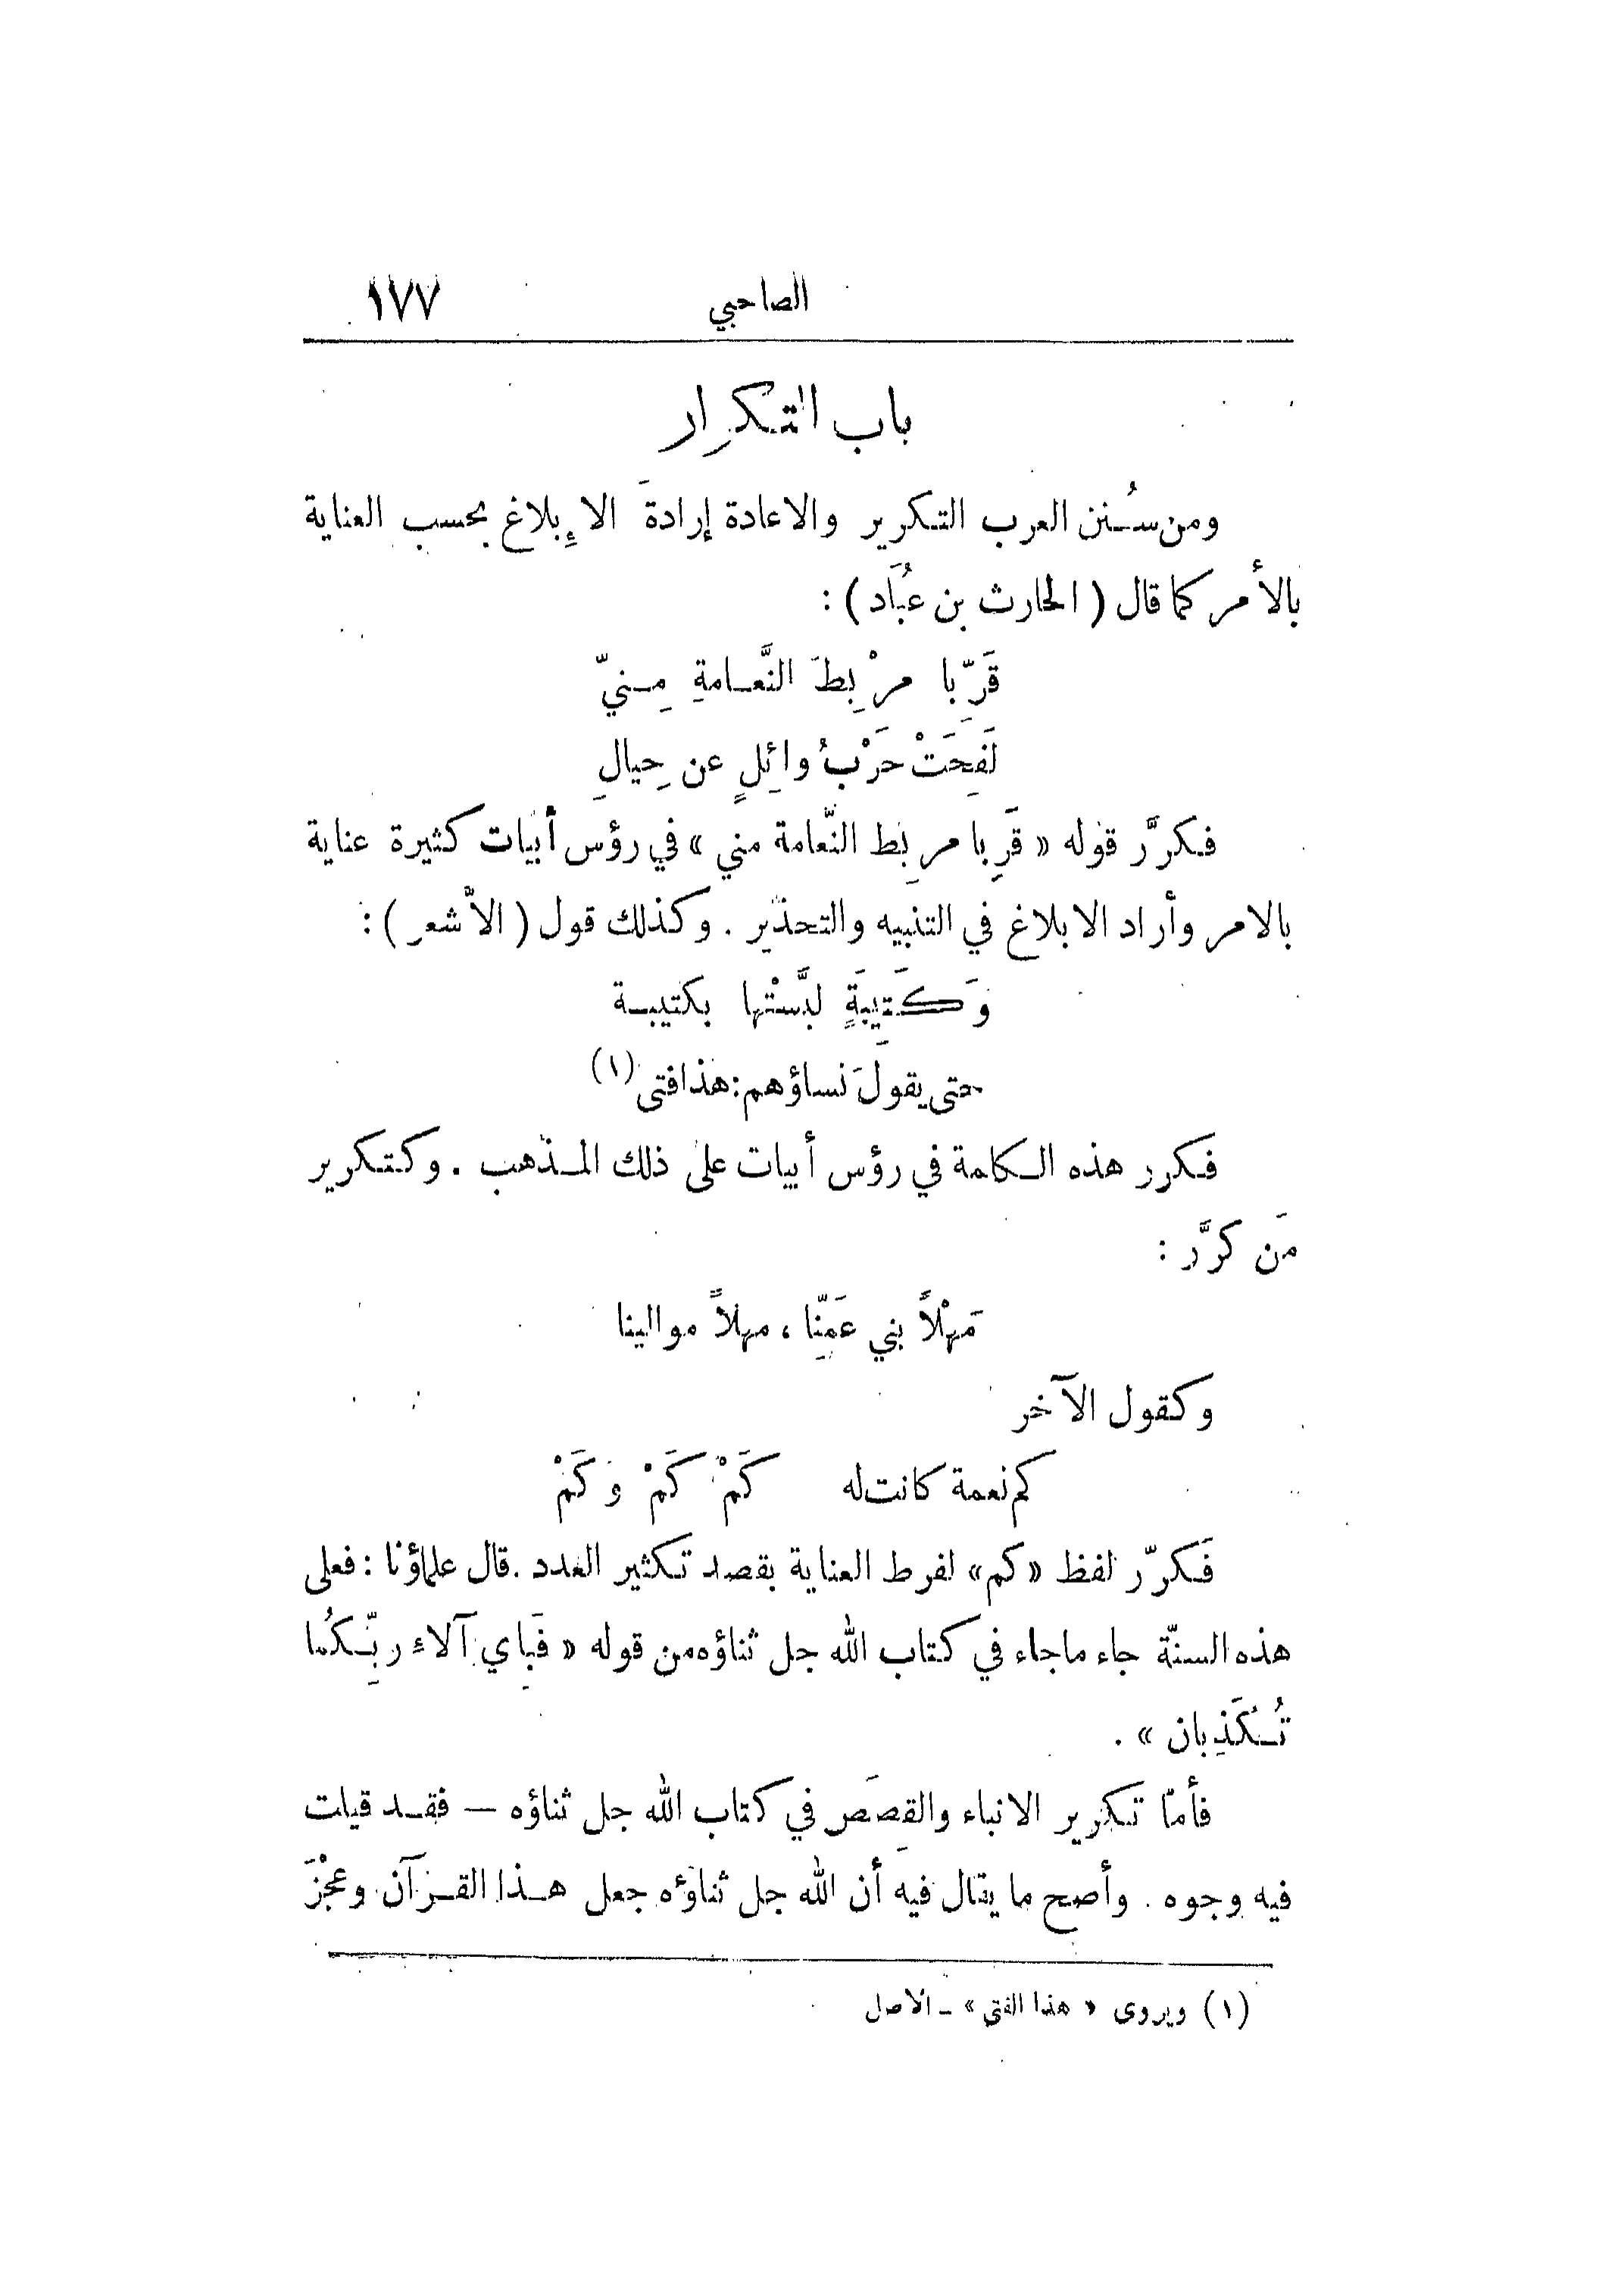 الصاحبي ١٧٧
باب التكرار
ومن سُنن العرب التكرير والاعادة إرادةَ الإِبلاغ بحسب العناية
بالأمر كما قال ( الحارث بن عُبَاد ) :
قَرِّبا مرْبِطَ النَّعامةِ مِنيّ
لَقِحَتْ حَرْبُ وائِلٍ عن حِيالِ
فكرَّر قوله « قَرِبا مربِط النَّعامة مني » في رؤس أبيات كثيرة عناية
بالامر وأراد الابلاغ في التنبيه والتحذير . وكذلك قول ( الأشعر ) :
وَكَتِيبَةٍ لبَّسْتُها بكتيبة
حتى يقولَ نساؤهم: هذا فتى (١)
فكرر هذه الكلمة في رؤس أبيات على ذلك المذهب . وكتكرير
مَن كرَّر :
مَهْلاً بني عَمِّنا ، مهلاً موالينا
وكقول الآخر
كم نعمة كانت له كَمْ كَمْ وَكَمْ
فَكرّر لفظ « كم » لفرط العناية بقصد تكثير العدد . قال علماؤنا : فعلى
هذه السنّة جاء ماجاء في كتاب الله جل ثناؤه من قوله « فَبِاي آلاءِ ربِّكُما
تُكَذِبان » .
فأمّا تكرير الانباء والقِصَص في كتاب الله جل ثناؤه — فقد قيلت
فيه وجوه . وأصح ما يقال فيه أن الله جل ثناؤه جعل هذا القرآن وعجْزَ
(١) ويروى « هذا الفتى » ـ الاصل